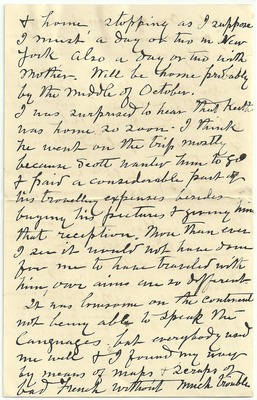 & home stopping as I suppose
I must a day or two in New
York also a day or two with
Mother. Will be home probably
by the middle of October.
I was surprised to hear that Keith
was home so soon. I think
he went on the trip mostly
because Scott wanted him to go
& paid a considerable part of
his travelling expenses besides
buying his pictures & giving him
that reception. More than ever
I see it would not have done
for me to have traveled with
him our aims are so different
It was lonesome on the continent
not being able to speak the
languages but everybody used
me well & I found my way
by means of maps & scraps of
bad French without much trouble